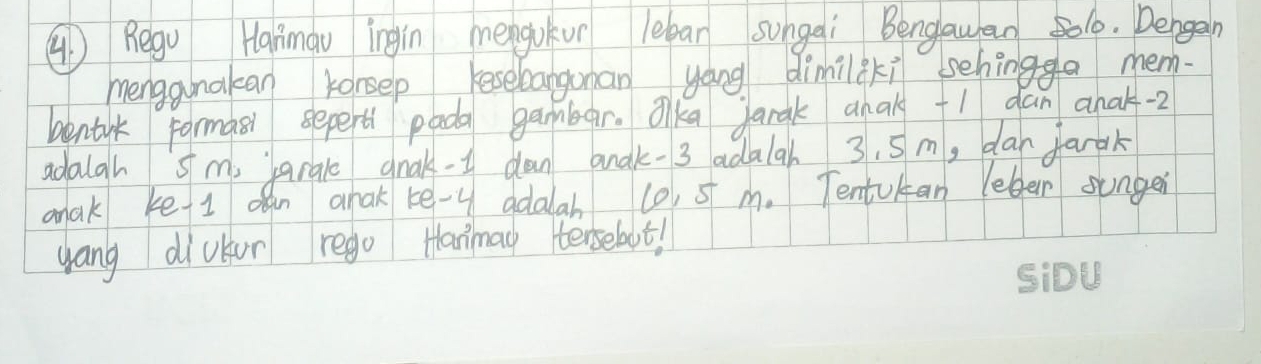 4. Regu Harimau ingin mengukur lebar sungai Bengawan Solo. Dengan
menggunakan konsep kesebangunan yang dimiliki sehingga mem-
bentuk formasi seperti pada gambar. Jika jarak anak -1 dan anak-2
adalah 5 m, jarak anak-1 dan anak-3 adalah 3,5 m, dan jarak
anak ke-1 dan anak ke-4 adalah 10,5 m. Tentukan lebar sungai
yang diukur regu Harimau tersebut!
SiDU